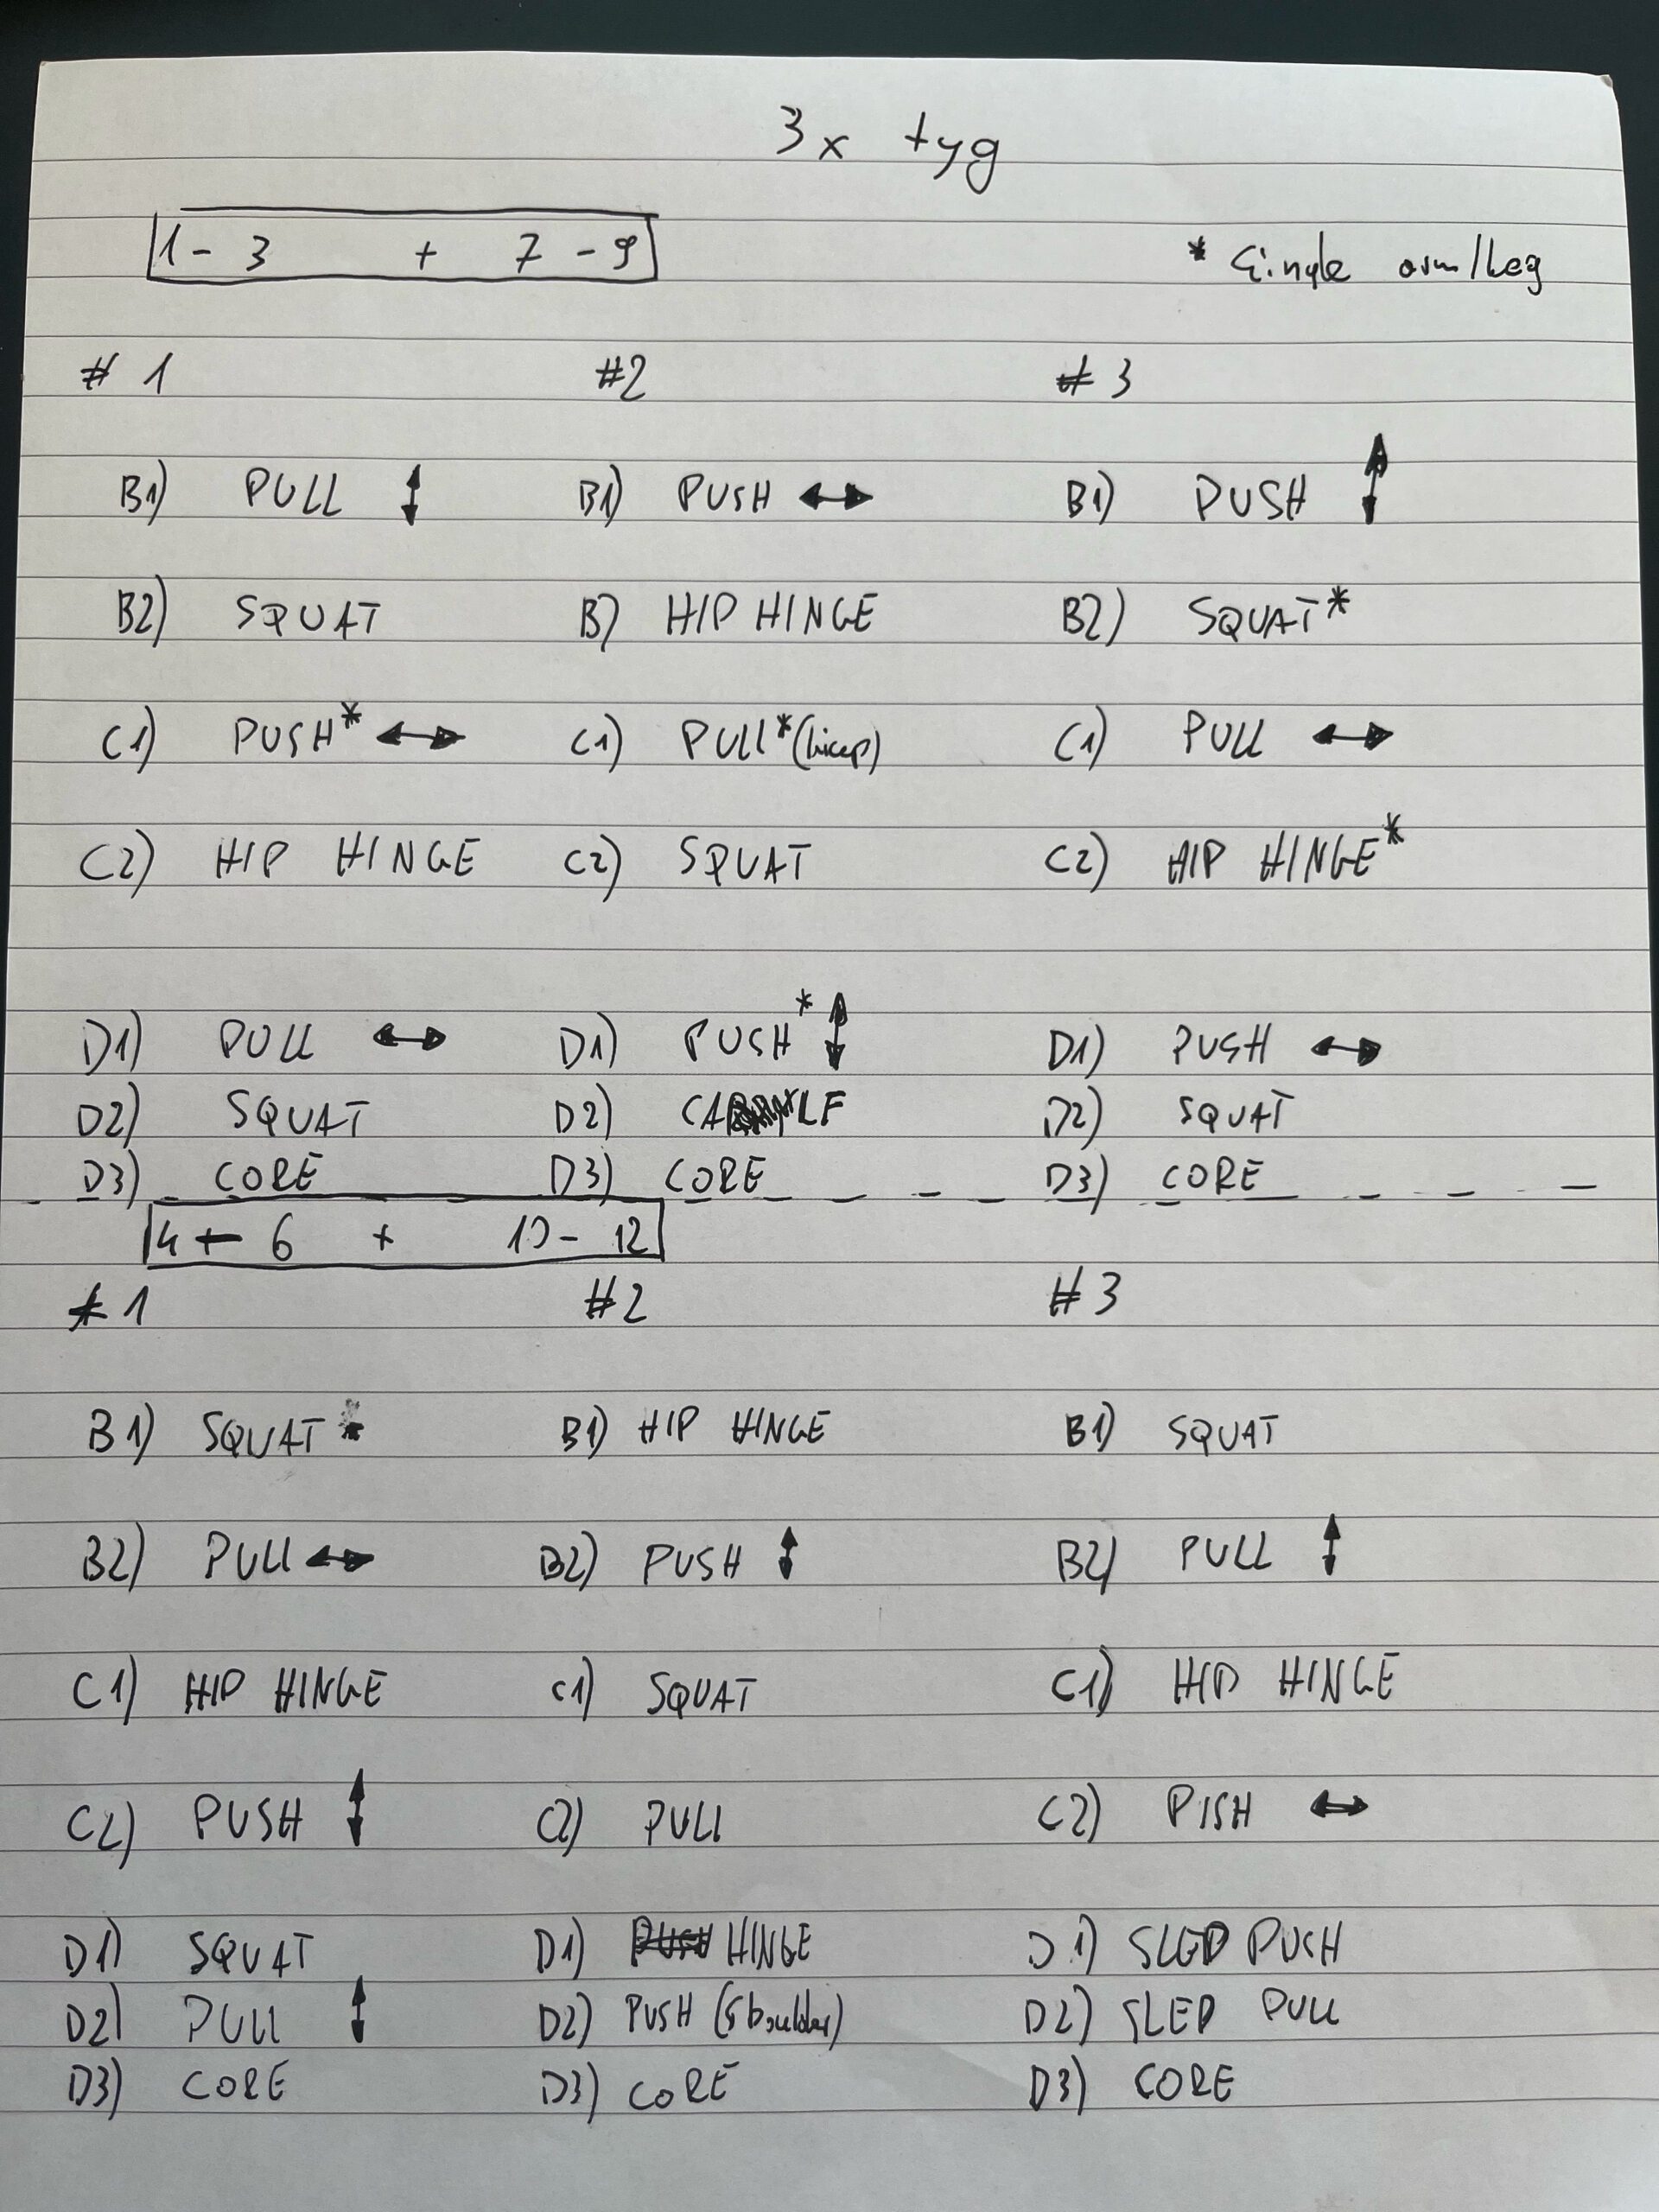 3x tyg
1 - 3 + 7 - 9 * Single arm/Leg
# 1 #2 # 3
B1) PULL ↕ B1) PUSH ↔ B1) PUSH ↕
B2) SQUAT B) HIP HINGE B2) SQUAT*
C1) PUSH* ↔ C1) PULL* (bicep) C1) PULL ↔
C2) HIP HINGE C2) SQUAT C2) HIP HINGE*
D1) PULL ↔ D1) PUSH* ↕ D1) PUSH ↔
D2) SQUAT D2) CALF D2) SQUAT
D3) CORE D3) CORE D3) CORE
4 - 6 + 10 - 12
# 1 #2 # 3
B1) SQUAT * B1) HIP HINGE B1) SQUAT
B2) PULL ↔ B2) PUSH ↕ B2) PULL ↕
C1) HIP HINGE C1) SQUAT C1) HIP HINGE
C2) PUSH ↕ C2) PULL C2) PISH ↔
D1) SQUAT D1) PUSH HINGE D1) SLED PUSH
D2) PULL ↕ D2) PUSH (Shoulder) D2) SLED PULL
D3) CORE D3) CORE D3) CORE